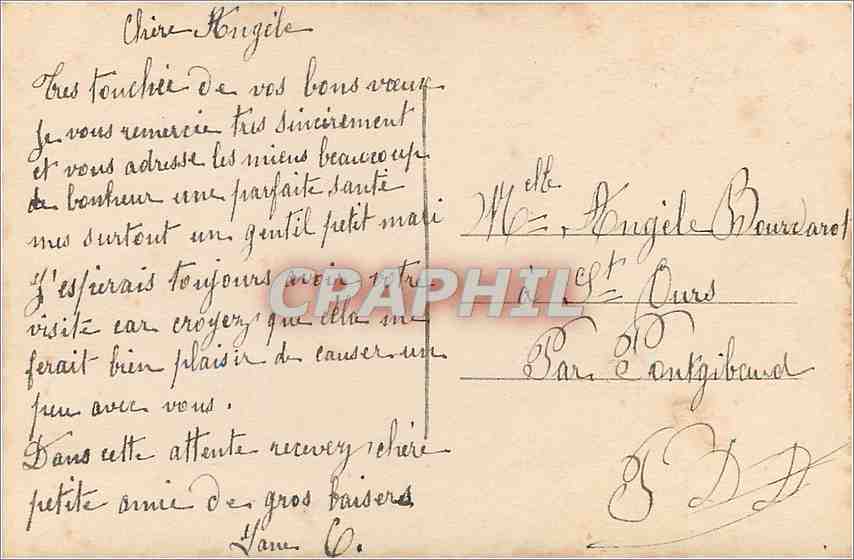 Chère Angèle
Très touchée de vos bons vœux
Je vous remercie très sincèrement
et vous adresse les miens beaucoup
de bonheur une parfaite santé
mes surtout un gentil petit mari
J'espérais toujours avoir votre
visite car croyez que cela me
ferait bien plaisir de causer un
peu avec vous.
Dans cette attente recevez chère
petite amie de gros baisers
C.
Melle Angèle Bourdarot
à St Ours
Par Pontgibaud
P D D
CPAPHIL